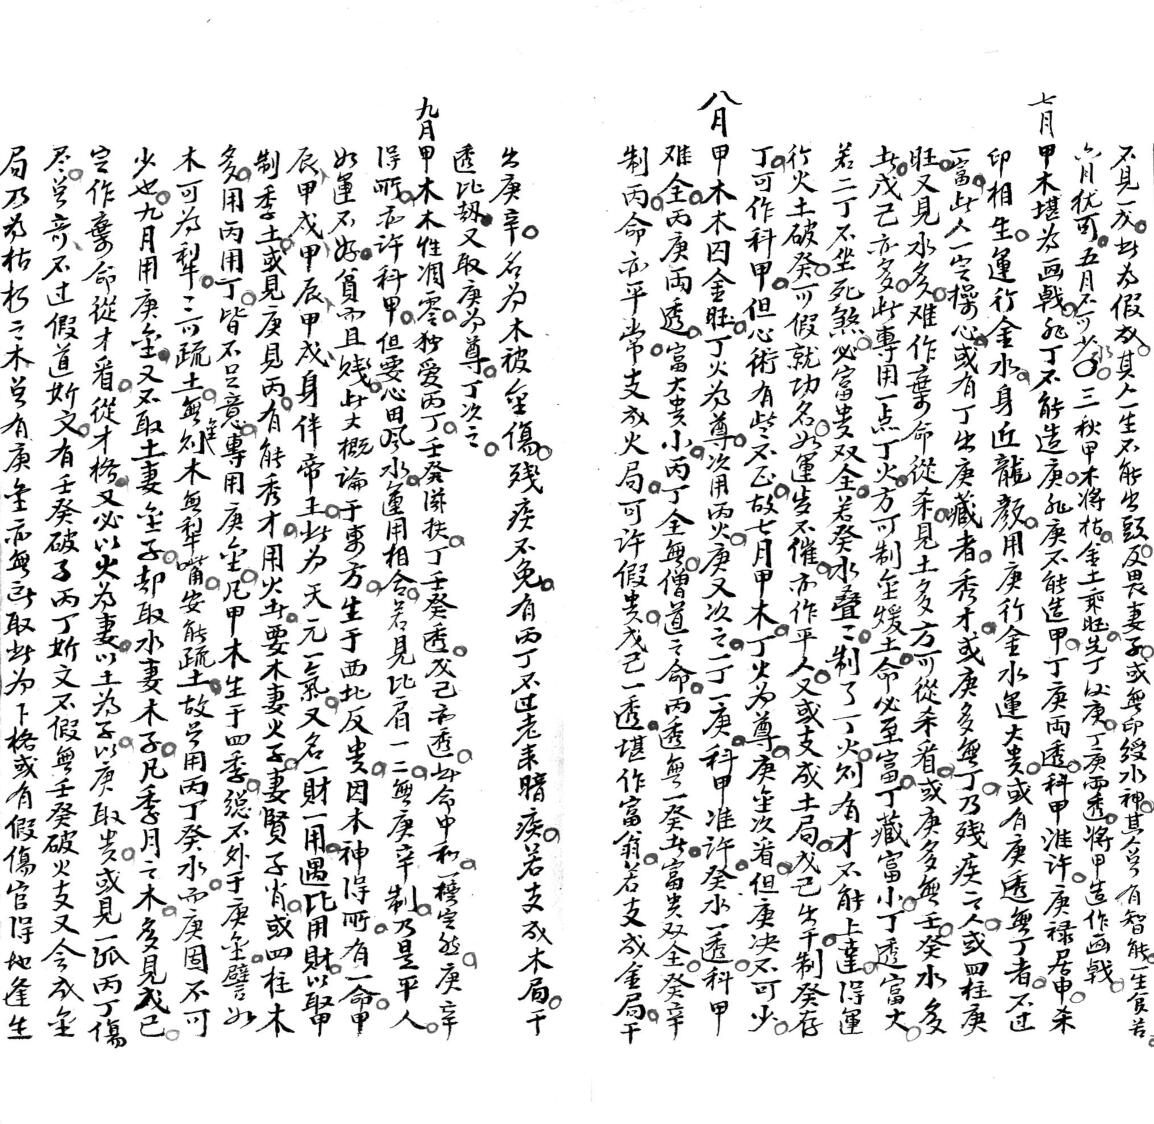 不見一戊此为假戊其人一生不能出頭反畏妻子或無印绶水神其人总有智能一生貧苦
六月犹可五月不可少水〇三秋甲木將枯金土乘旺先丁後庚丁庚両透將甲造作画戟
七月甲木堪为画戟非丁不能造庚非庚不能造甲丁庚両透科甲准许庚禄居申杀
印相生運行金水身近龍顏用庚行金水運大贵或有庚透無丁者不过
一富此人一定操心或有丁出庚藏者秀才或庚多無丁乃残疾之人或四柱庚
旺又見水多难作棄命從杀見土多方可從杀看或庚多無壬癸水多
此戊己亦多此專用一点丁火方可制金煖土命必至富丁藏富小丁透富大
若二丁不坐死煞必富贵双全若癸水叠二制了一丁火则有才不能上達得運
行火土破癸可假就功名如運步不催亦作平人又或支成土局戊己出干制癸存
丁可作科甲但心術有些不正故七月甲木丁火为尊庚金次看但庚决不可少
八月甲木木囚金旺丁火为尊次用丙火庚又次之一丁一庚科甲准许癸水一透科甲
难全丙庚両透富大贵小丙丁全無僧道之命丙透無一癸者富贵双全癸辛
制丙命亦平常支成火局可许假贵戊己一透堪作富翁若支成金局干
出庚辛名为木被金傷残疾不免有丙丁不过老来暗疾若支成木局干
透比刼又取庚为尊丁次之
九月甲木木性凋零独爱丙丁壬癸滋扶丁壬癸透戊己亦透此命中和一榜定然庚辛
得所亦许科甲但要心田風水運用相合若見比肩一二無庚辛制乃是平人
如運不好貧而且賤此大概論于東方生于西北反贵因木神得所有一命甲
辰甲戌甲辰甲戌身伴帝王此为天元一氣又名一財一用遇比用財以取甲
制季土或見庚見丙有能秀才用火者要木妻火子妻賢子肖或四柱木
多用丙用丁皆不足意專用庚金凡甲木生于四季總不外于庚金譬如
木可为犁二可疏土無則木無犁嘴安能疏土故总用丙丁癸水而庚固不可
少也九月用庚金又不取土妻金子却取水妻木子凡季月之木多見戊己
定作棄命從才看從才格又必以火为妻以土为子以庚取贵或見一派丙丁傷
尽总奇不过假道斯文有壬癸破了丙丁斯文不假無壬癸破火支又会成金
局乃为枯朽之木总有庚金亦無所取此为下格或有假傷官得地逢生